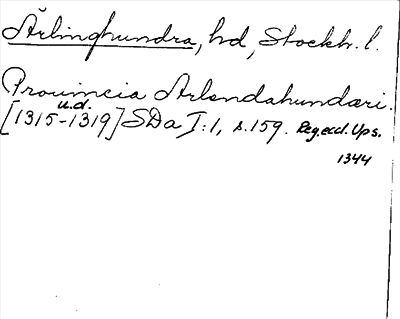 Ärlinghundra, hd, Stockh. l.
Prouincia Arlendahundæri.
u.d.
[1315-1319] SDa I:1, s.159. Reg. eccl. Ups.
1344